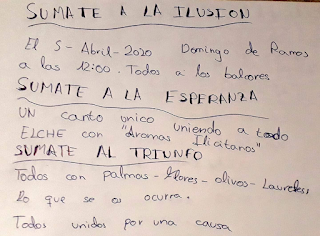 SUMATE A LA ILUSION
El 5-Abril-2020 Domingo de Ramos
a las 12:00. Todos a los balcones
SUMATE A LA ESPERANZA
UN canto unico uniendo a todo
ELCHE con "Aromas Ilicitanos"
SUMATE AL TRIUNFO
Todos con palmas-flores-olivos-Laureles,
lo que se os ocurra.
Todos unidos por una causa